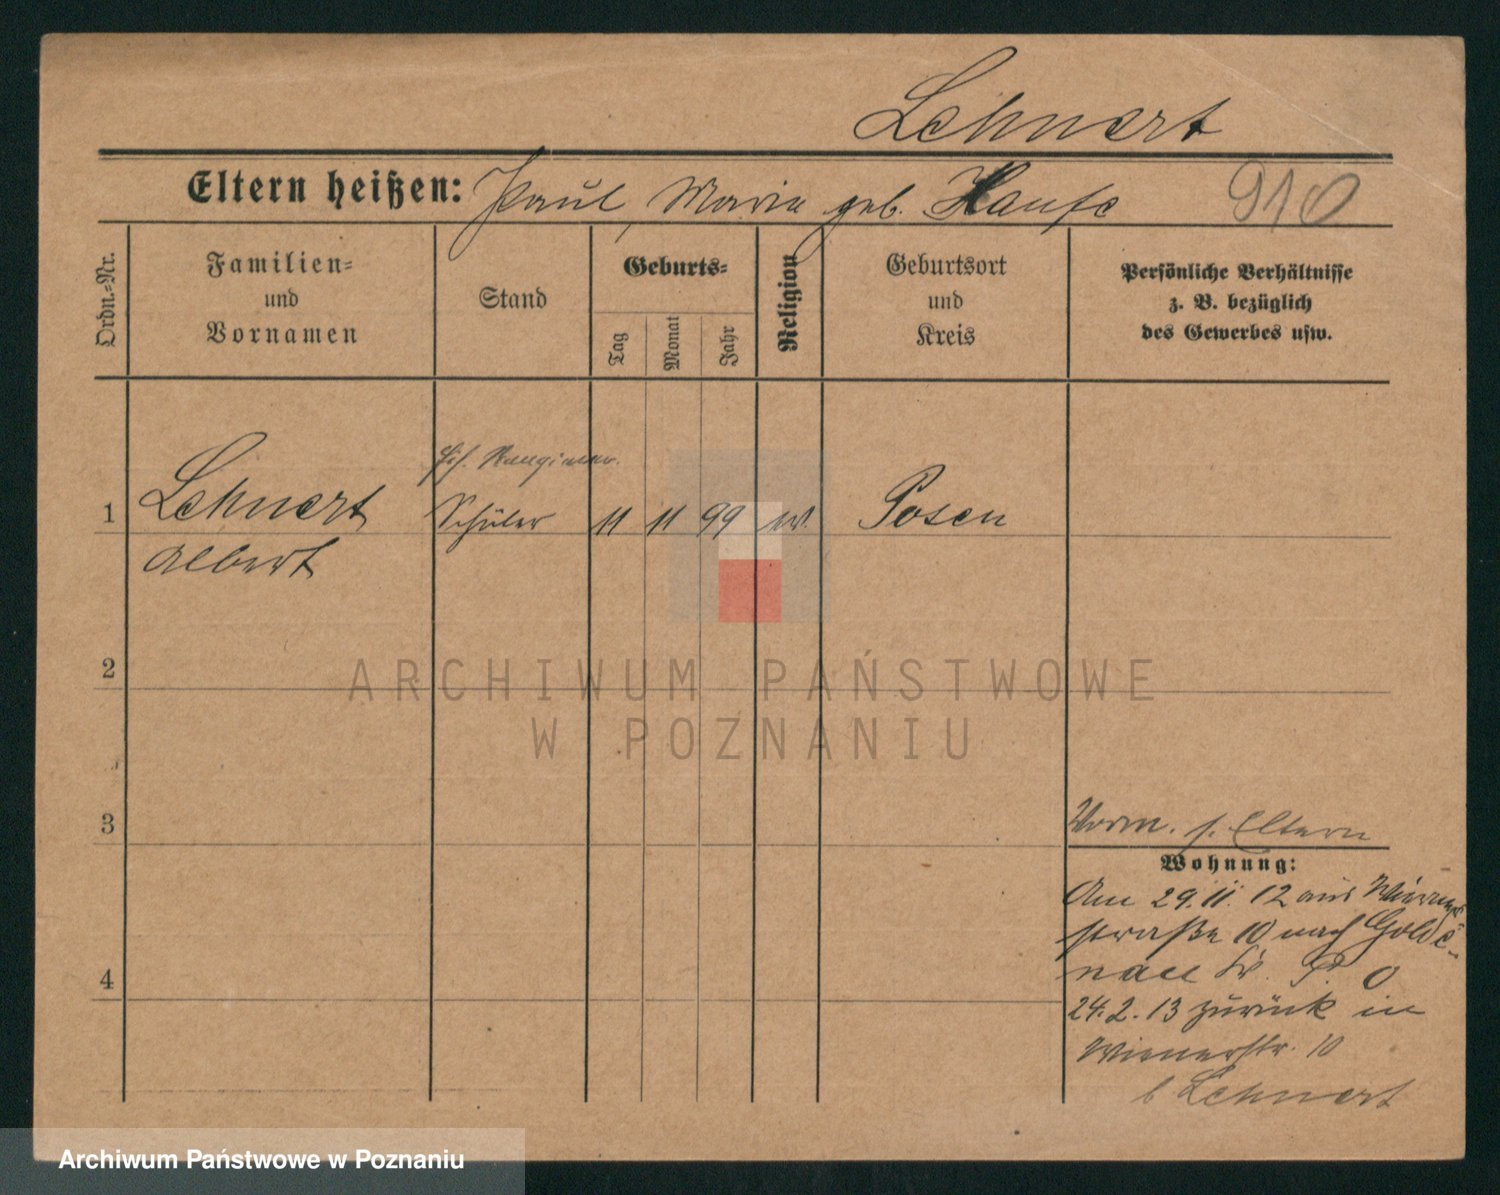 Lehnert
Eltern heißen: Paul Maria geb. Hanfe 910
Ordn.-Nr.
Familien-
und
Vornamen
Stand
Geburts-
Tag
Monat
Jahr
Religion
Geburtsort
und
Kreis
Persönliche Verhältnisse
z. B. bezüglich
des Gewerbes usw.
1 Lehnert Schüler 11 11 99 ev. Posen
Albert
2
3
4
Vorm. s. Eltern
Wohnung:
Am 29.11.12 aus Wiener
straße 10 nach
24.2.13 zurück in
Wienerstr. 10
b Lehnert
ARCHIWUM PAŃSTWOWE
W POZNANIU
Archiwum Państwowe w Poznaniu